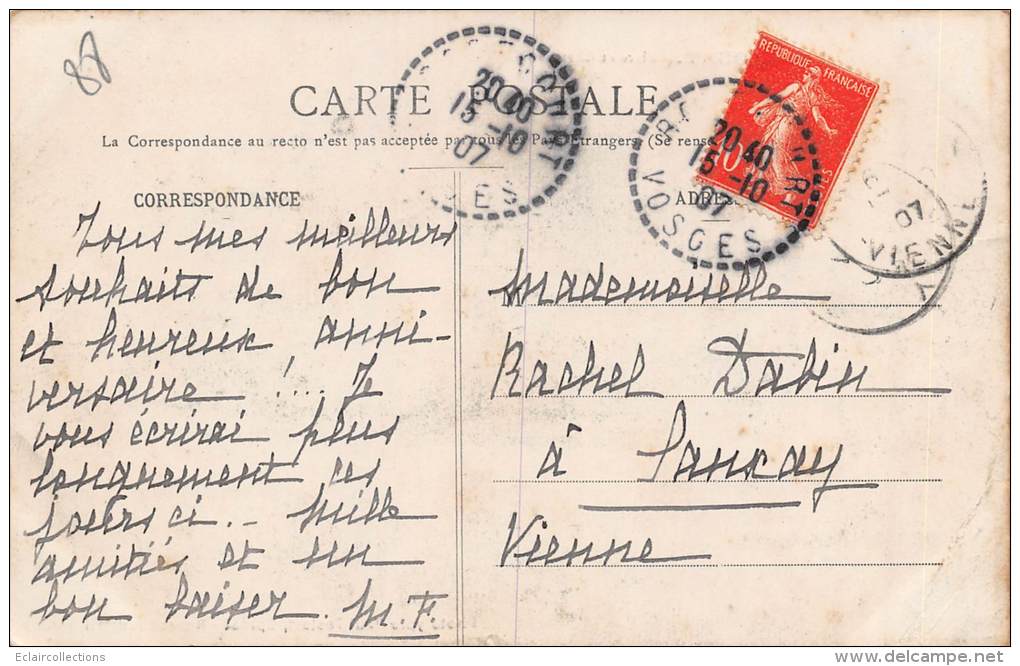 88
CARTE POSTALE
La Correspondance au recto n'est pas acceptée par tous les Pays Étrangers. (Se rense
CORRESPONDANCE
Tous mes meilleurs
souhaits de bon
et heureux anni-
versaire !... Je
vous écrirai plus
longuement ces
jours ci.- Mille
amitiés et un
bon baiser. M. F.
ADRES
Mademoiselle
Rachel Dabin
à Sanxay
Vienne
REPUBLIQUE FRANÇAISE
10
COURT
20 40
15 -10
07
GES
20 40
15 -10
07
VOSGES
07
VIENNE
Eclaircollections
www.delcampe.net